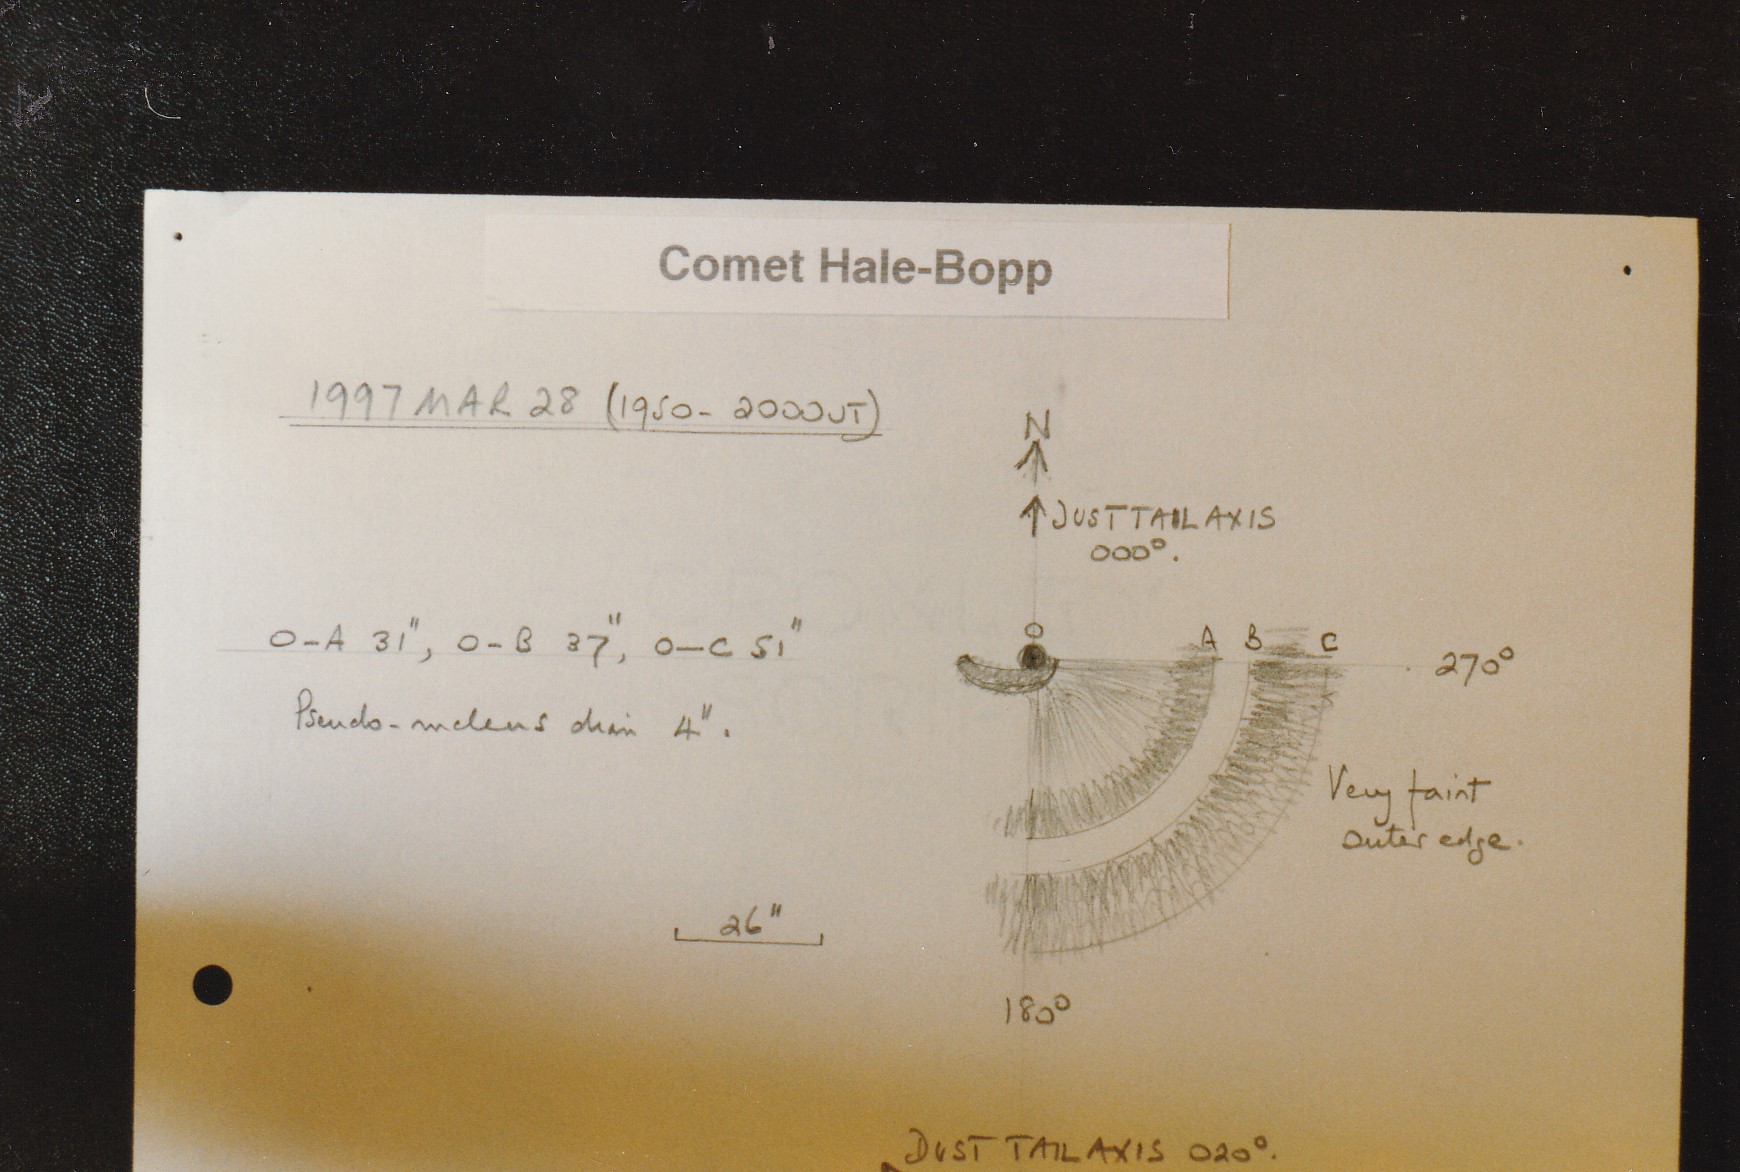 Comet Hale-Bopp
1997 MAR 28 (1950-2000UT)
N
DUST TAIL AXIS
000°.
O
A B C
270°
O-A 31", O-B 37", O-C 51"
Pseudo-nucleus diam 4".
Very faint
outer edge.
26"
180°
DUST TAIL AXIS 020°.